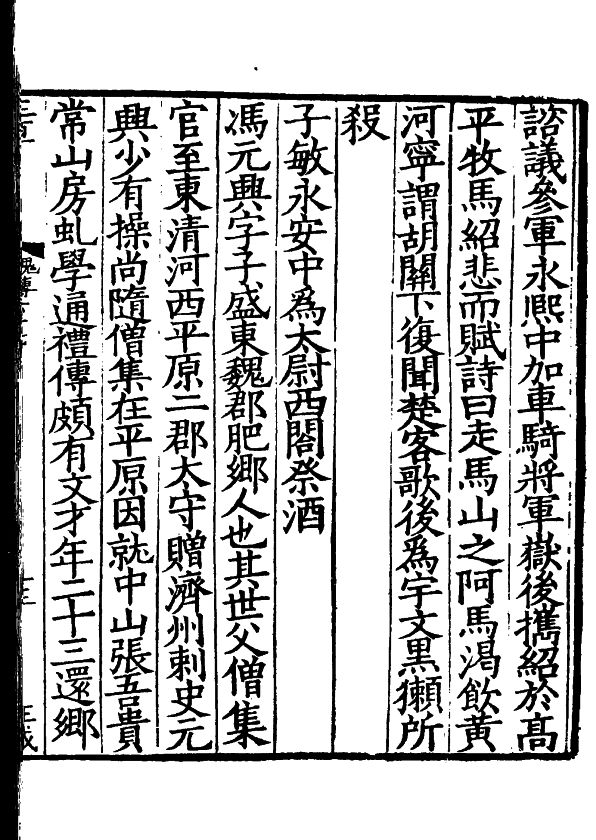 諮議參軍永熙中加車騎將軍嶽後攜紹於高
平牧馬紹悲而賦詩曰走馬山之阿馬渴飲黃
河寧謂胡關下復聞楚客歌後爲宇文黑獺所
殺
子敏永安中爲太尉西閤祭酒
馮元興字子盛東魏郡肥鄉人也其世父僧集
官至東清河西平原二郡太守贈濟州刺史元
興少有操尚隨僧集在平原因就中山張吾貴
常山房虬學通禮傳頗有文才年二十三還鄉